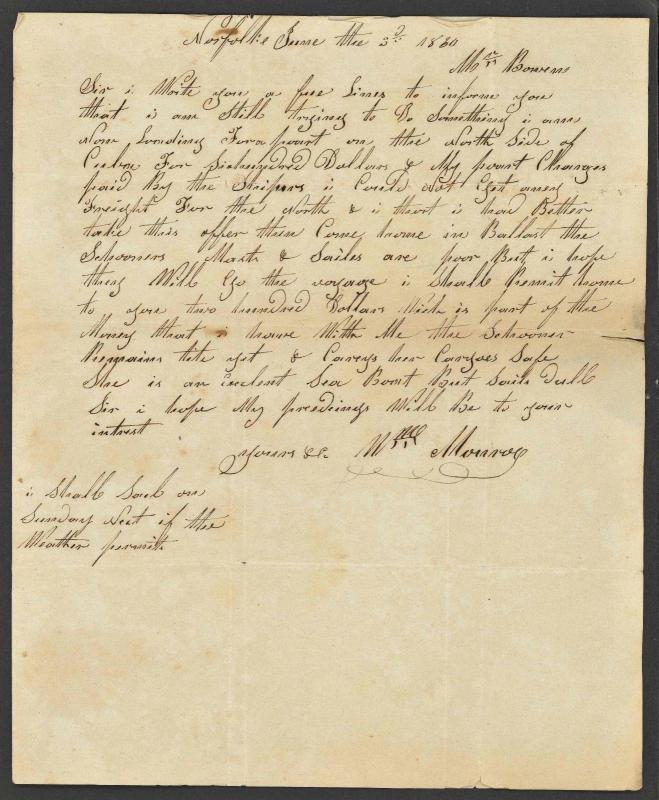 Norfolk June the 3d 1830
Mr Bowen
Sir i Write you a fue Lines to inform you
that i am Still trying to Do Something i am
Now Loading For a poart on the North Side of
Cuba For Sixhundred Dollars & My poart Charges
paid By the Shipers i Could Not Get aney
Freight For the North & i thort i had Better
take this offer then Come home in Ballast the
Schooners Masts & Sailes are poor But i hope
they Will Go the voyage i Shall Remit home
to you two hundred Dollars Wich is part of the
Money that i have With Me the Schooner
Remains tite yet & Careys her Cargoes Safe
She is an Exelent Sea Boat But Sails Dull
Sir i hope My preedings Will Be to your
intrest
yours &c. Wm Monroe
i Shall Sail on
Sunday Next if the
Weather permits